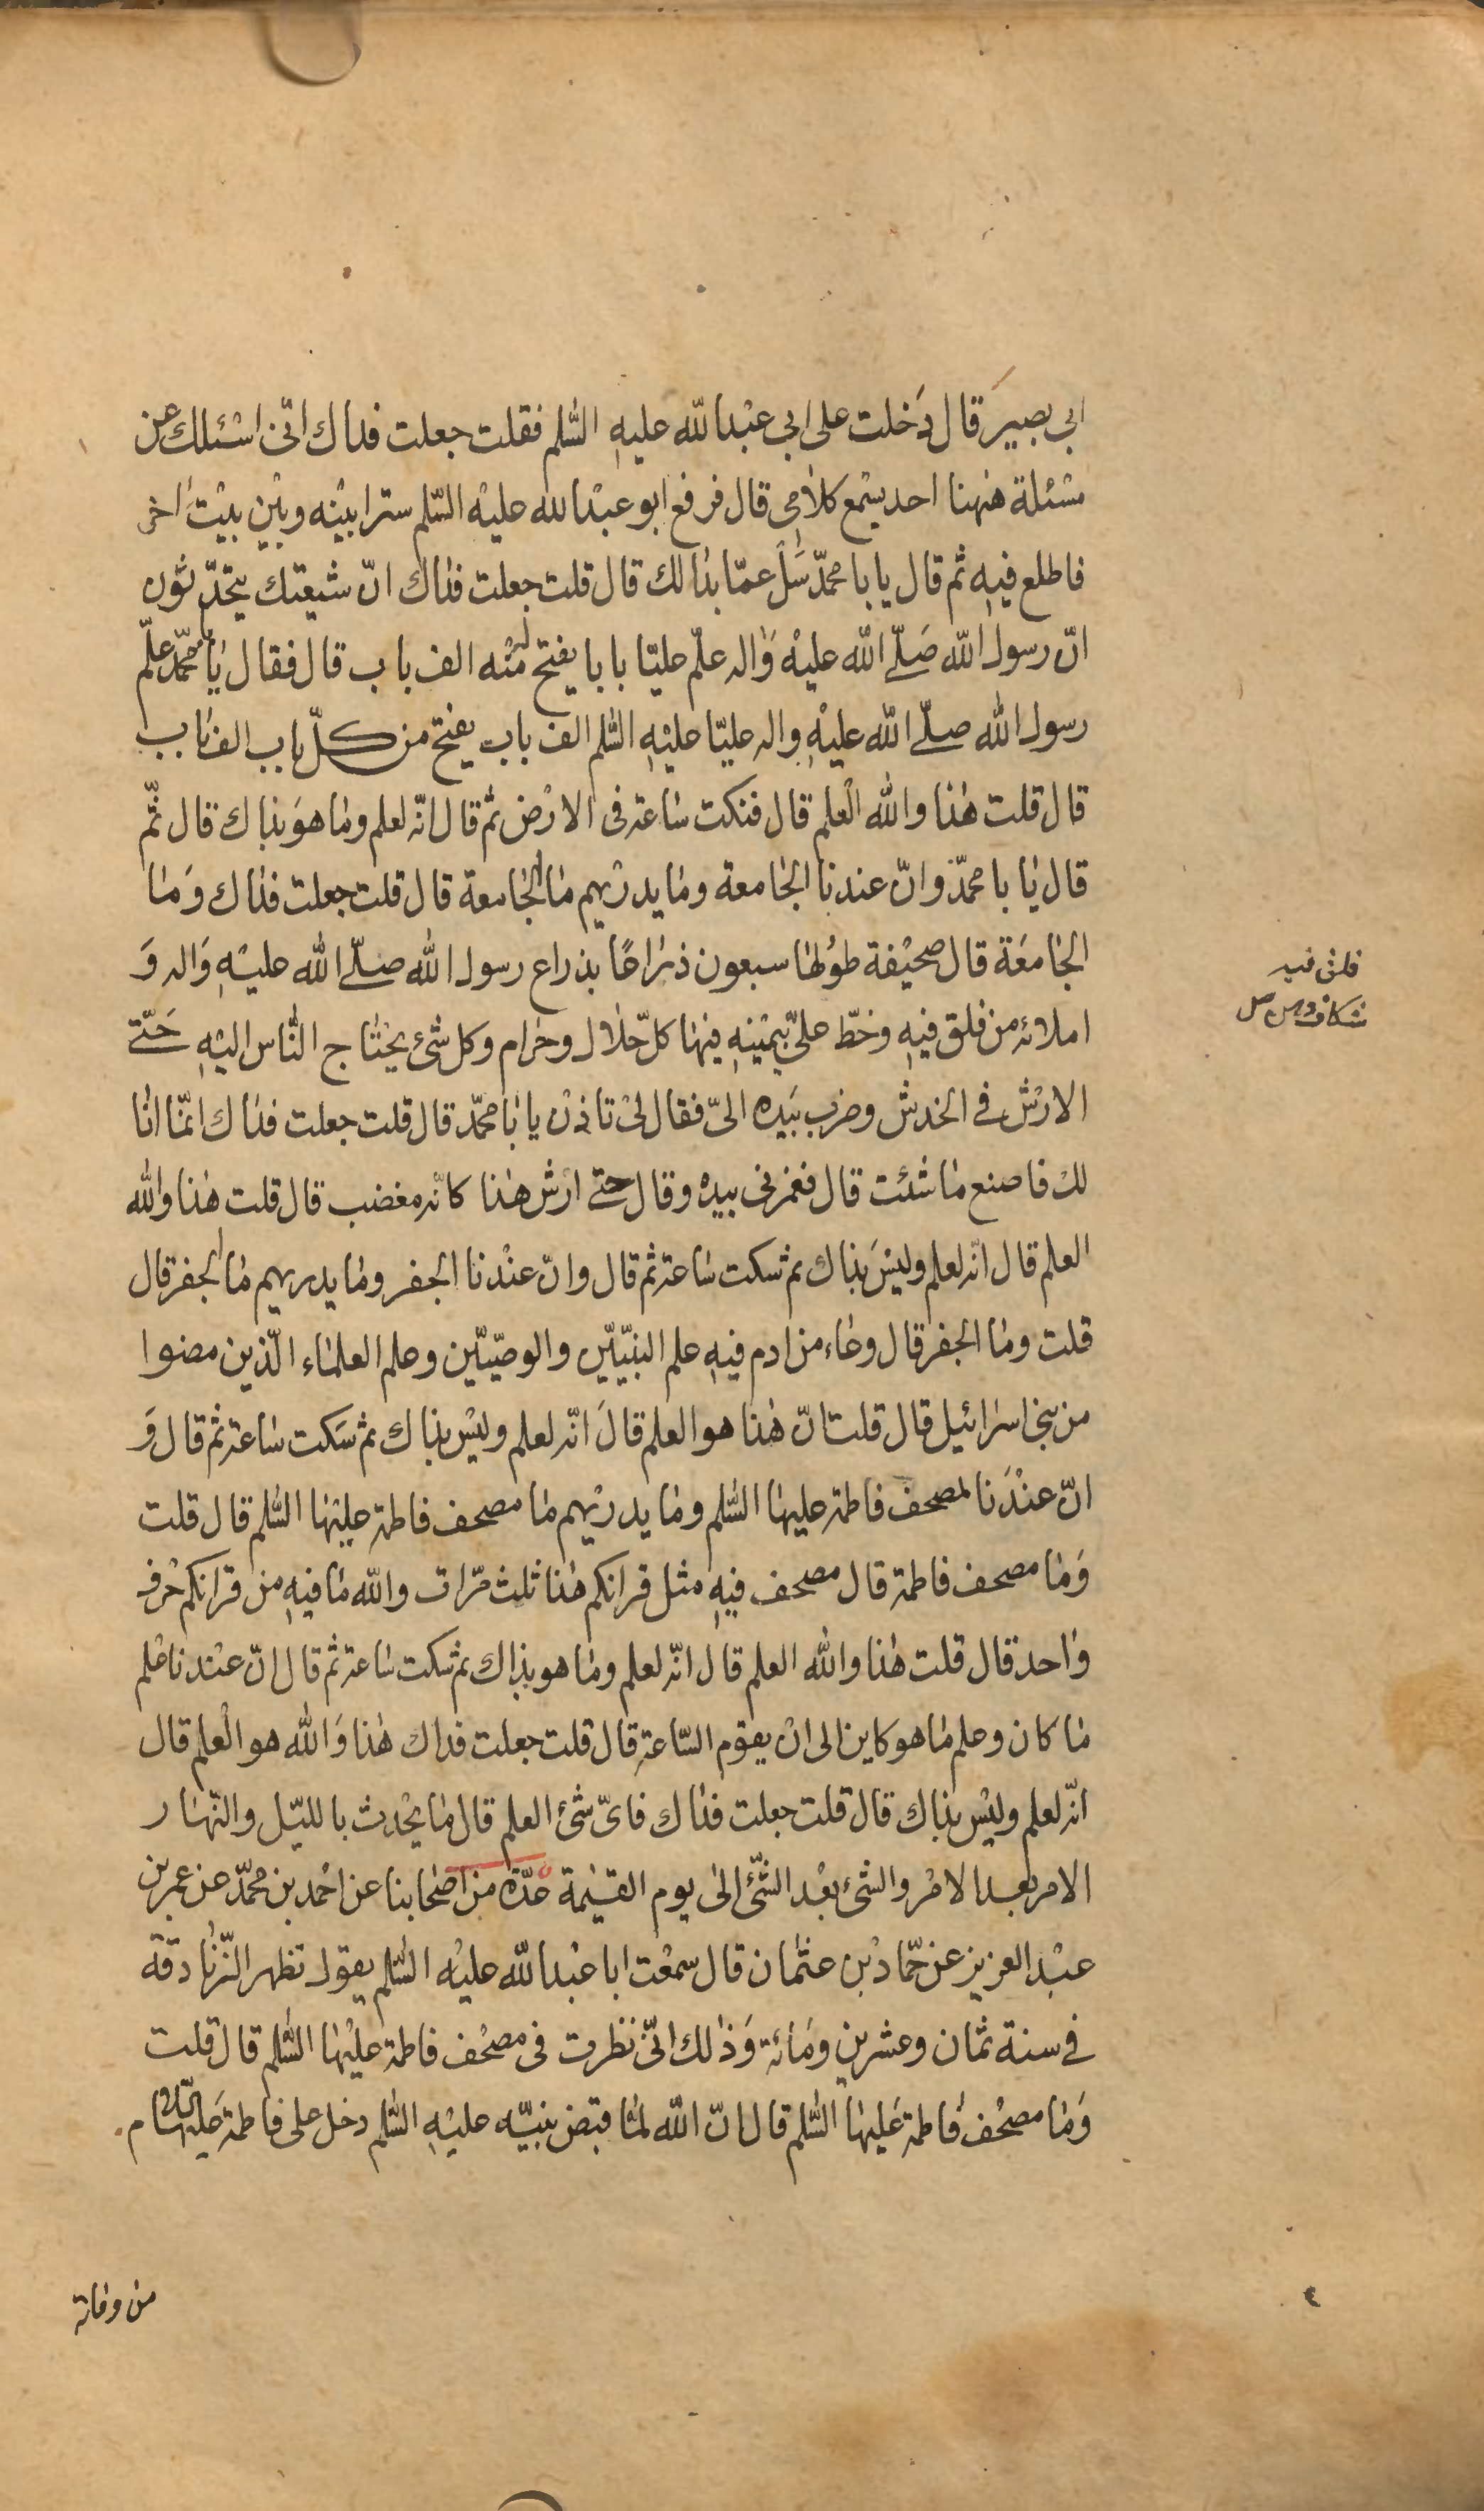 ابي بصير قال دخلت على ابي عبد الله عليه السّلم فقلت جعلت فداك انّى اسئلك عن
مسئلة هٰهنا احد يسمع كلامى قال فرفع ابو عبد الله عليه السّلم سترا بينه وبين بيت اخر
فاطلع فيه ثم قال يا با محمّد سل عمّا بدا لك قال قلت جعلت فداك انّ شيعتك يتحدّثون
انّ رسول الله صلّى الله عليه واله علّم عليّا بابا يفتح له منه الف باب قال فقال يا با محمّد علّم
رسول الله صلّى الله عليه واله عليّا عليه السّلم الف باب يفتح من كلّ باب الف باب
قال قلت هذا والله العلم قال فنكت ساعة فى الارض ثم قال انّه لعلم وما هو بذاك قال ثمّ
قال يا با محمّد وانّ عندنا الجامعة وما يدريهم ما الجامعة قال قلت جعلت فداك وما
الجامعة قال صحيفة طولها سبعون ذراعًا بذراع رسول الله صلّى الله عليه واله و
املائه من فلق فيه وخطّ علىّ بيمينه فيها كلّ حلال وحرام وكل شئ يحتاج النّاس اليه حتّى
الارش فى الخدش وضرب بيده الىّ فقال لى تاذن يا با محمّد قال قلت جعلت فداك انّما انا
لك فاصنع ما شئت قال فغمزنى بيده وقال حتى ارش هذا كانّه مغضب قال قلت هذا والله
العلم قال انّه لعلم وليس بذاك ثم سكت ساعة ثم قال وانّ عندنا الجفر وما يدريهم ما الجفر قال
قلت وما الجفر قال وعاء من ادم فيه علم النبيّين والوصيّين وعلم العلماء الّذين مضوا
من بنى اسرائيل قال قلت انّ هذا هو العلم قال انّه لعلم وليس بذاك ثم سكت ساعة ثم قال و
انّ عندنا لمصحف فاطمة عليها السّلم وما يدريهم ما مصحف فاطمة عليها السّلم قال قلت
وما مصحف فاطمة قال مصحف فيه مثل قرانكم هذا ثلث مرّات والله ما فيه من قرانكم حرف
واحد قال قلت هذا والله العلم قال انّه لعلم وما هو بذاك ثم سكت ساعة ثم قال انّ عندنا علم
ما كان وعلم ما هو كاين الى ان يقوم السّاعة قال قلت جعلت فداك هذا والله هو العلم قال
انّه لعلم وليس بذاك قال قلت جعلت فداك فاىّ شئ العلم قال ما يحدث بالليّل والنّهار
الامر بعد الامر والشئ بعد الشّئ الى يوم القيٰمة عدّة من اصحابنا عن احمد بن محمّد عن عمر بن
عبد العزيز عن حمّاد بن عثمان قال سمعت ابا عبد الله عليه السّلم يقول تظهر الزّنادقة
فى سنة ثمان وعشرين ومائة وذلك انّى نظرت فى مصحف فاطمة عليها السّلم قال قلت
وما مصحف فاطمة عليها السّلم قال انّ الله لمّا قبض نبيّه عليه السّلم دخل على فاطمة عليها السّلام
فلق فيه
شكاف دهن
من وفاته